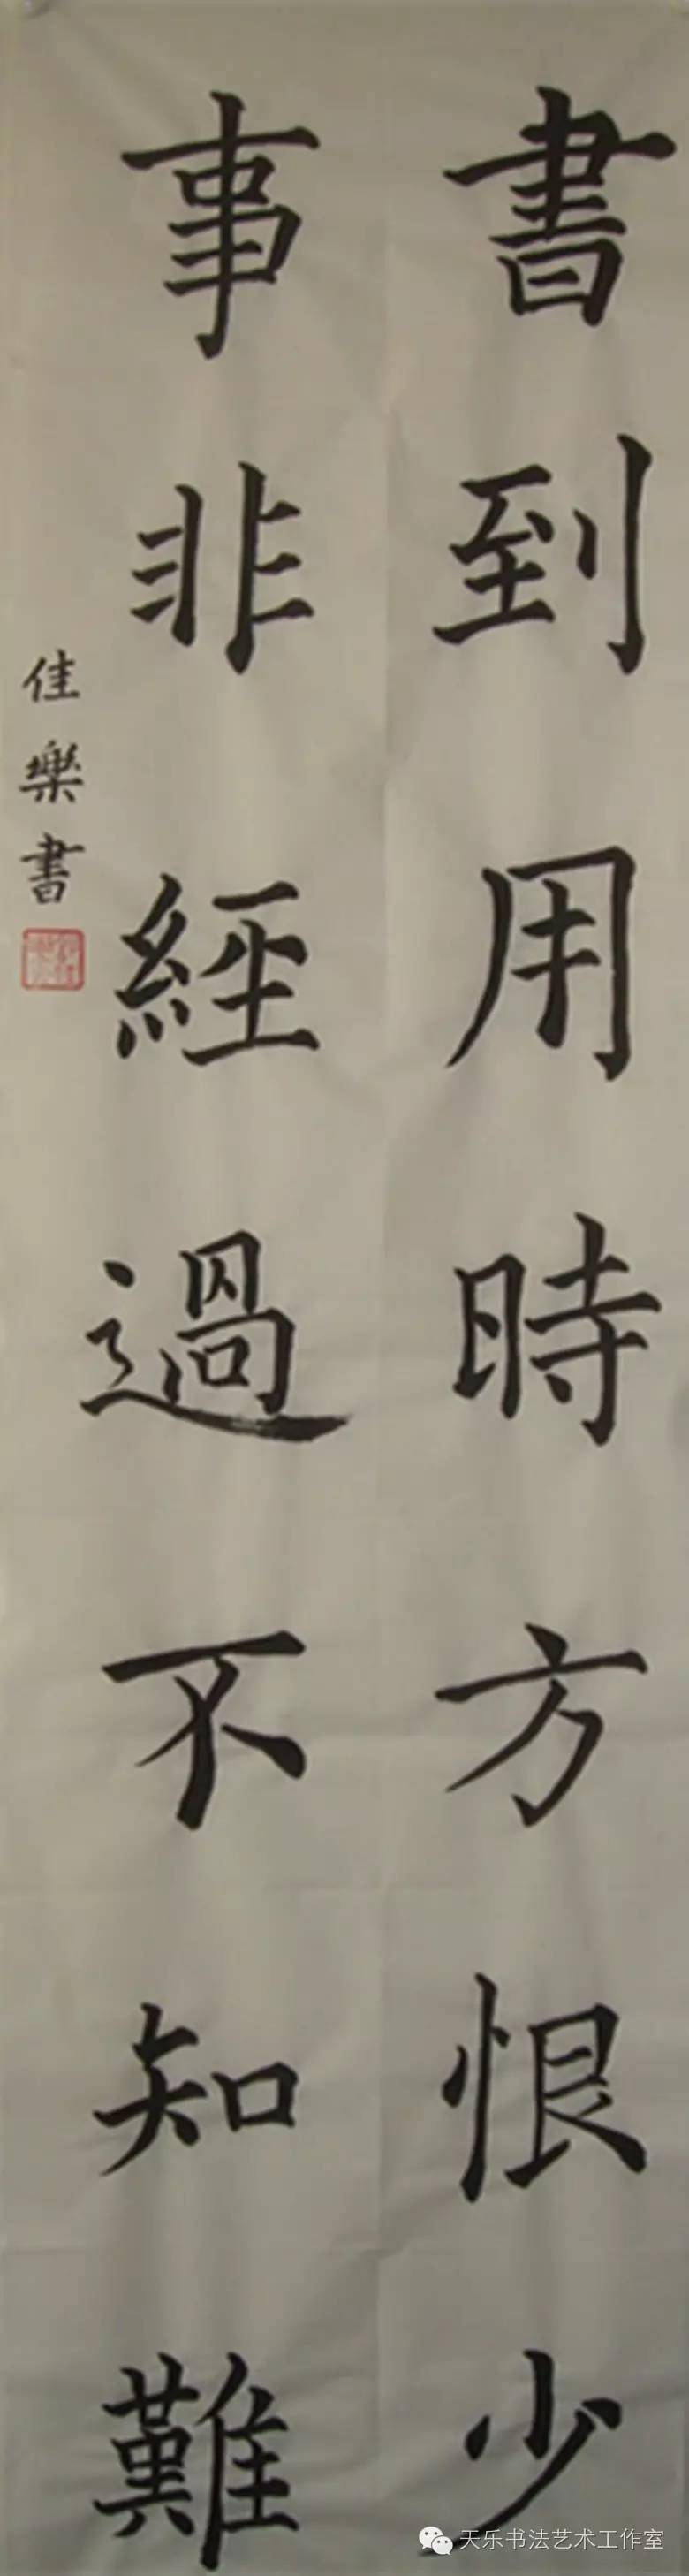 書到用時方恨少
事非經過不知難
佳樂書
天乐书法艺术工作室